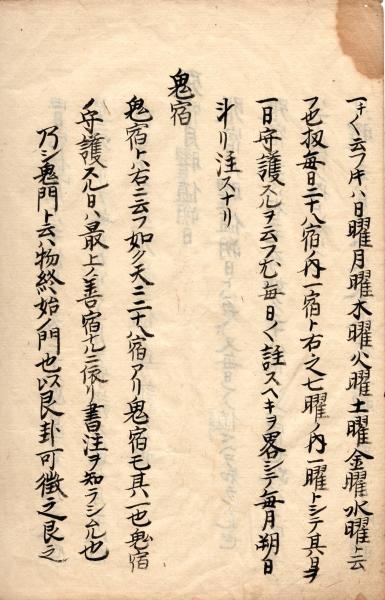 一ナク云フキハ日曜月曜水曜火曜土曜金曜水曜ト云
フ也扨毎日二十八宿ノ内一宿ト右之七曜ノ内一曜トシテ其日ヲ
一日守護スルヲ云フ尤毎日ノク註スヘキヲ畧シテ毎月朔日
斗リ注スナリ
鬼宿
鬼宿トハ右ニ云フ如ク天ニ二十八宿アリ鬼宿モ其一也鬼宿
ノ守護スル日ハ最上ノ善宿ナルニ依リ書注ヲ知ラシムル也
乃シ鬼門ト云ハ物終始ノ門也以艮卦可徴之艮之